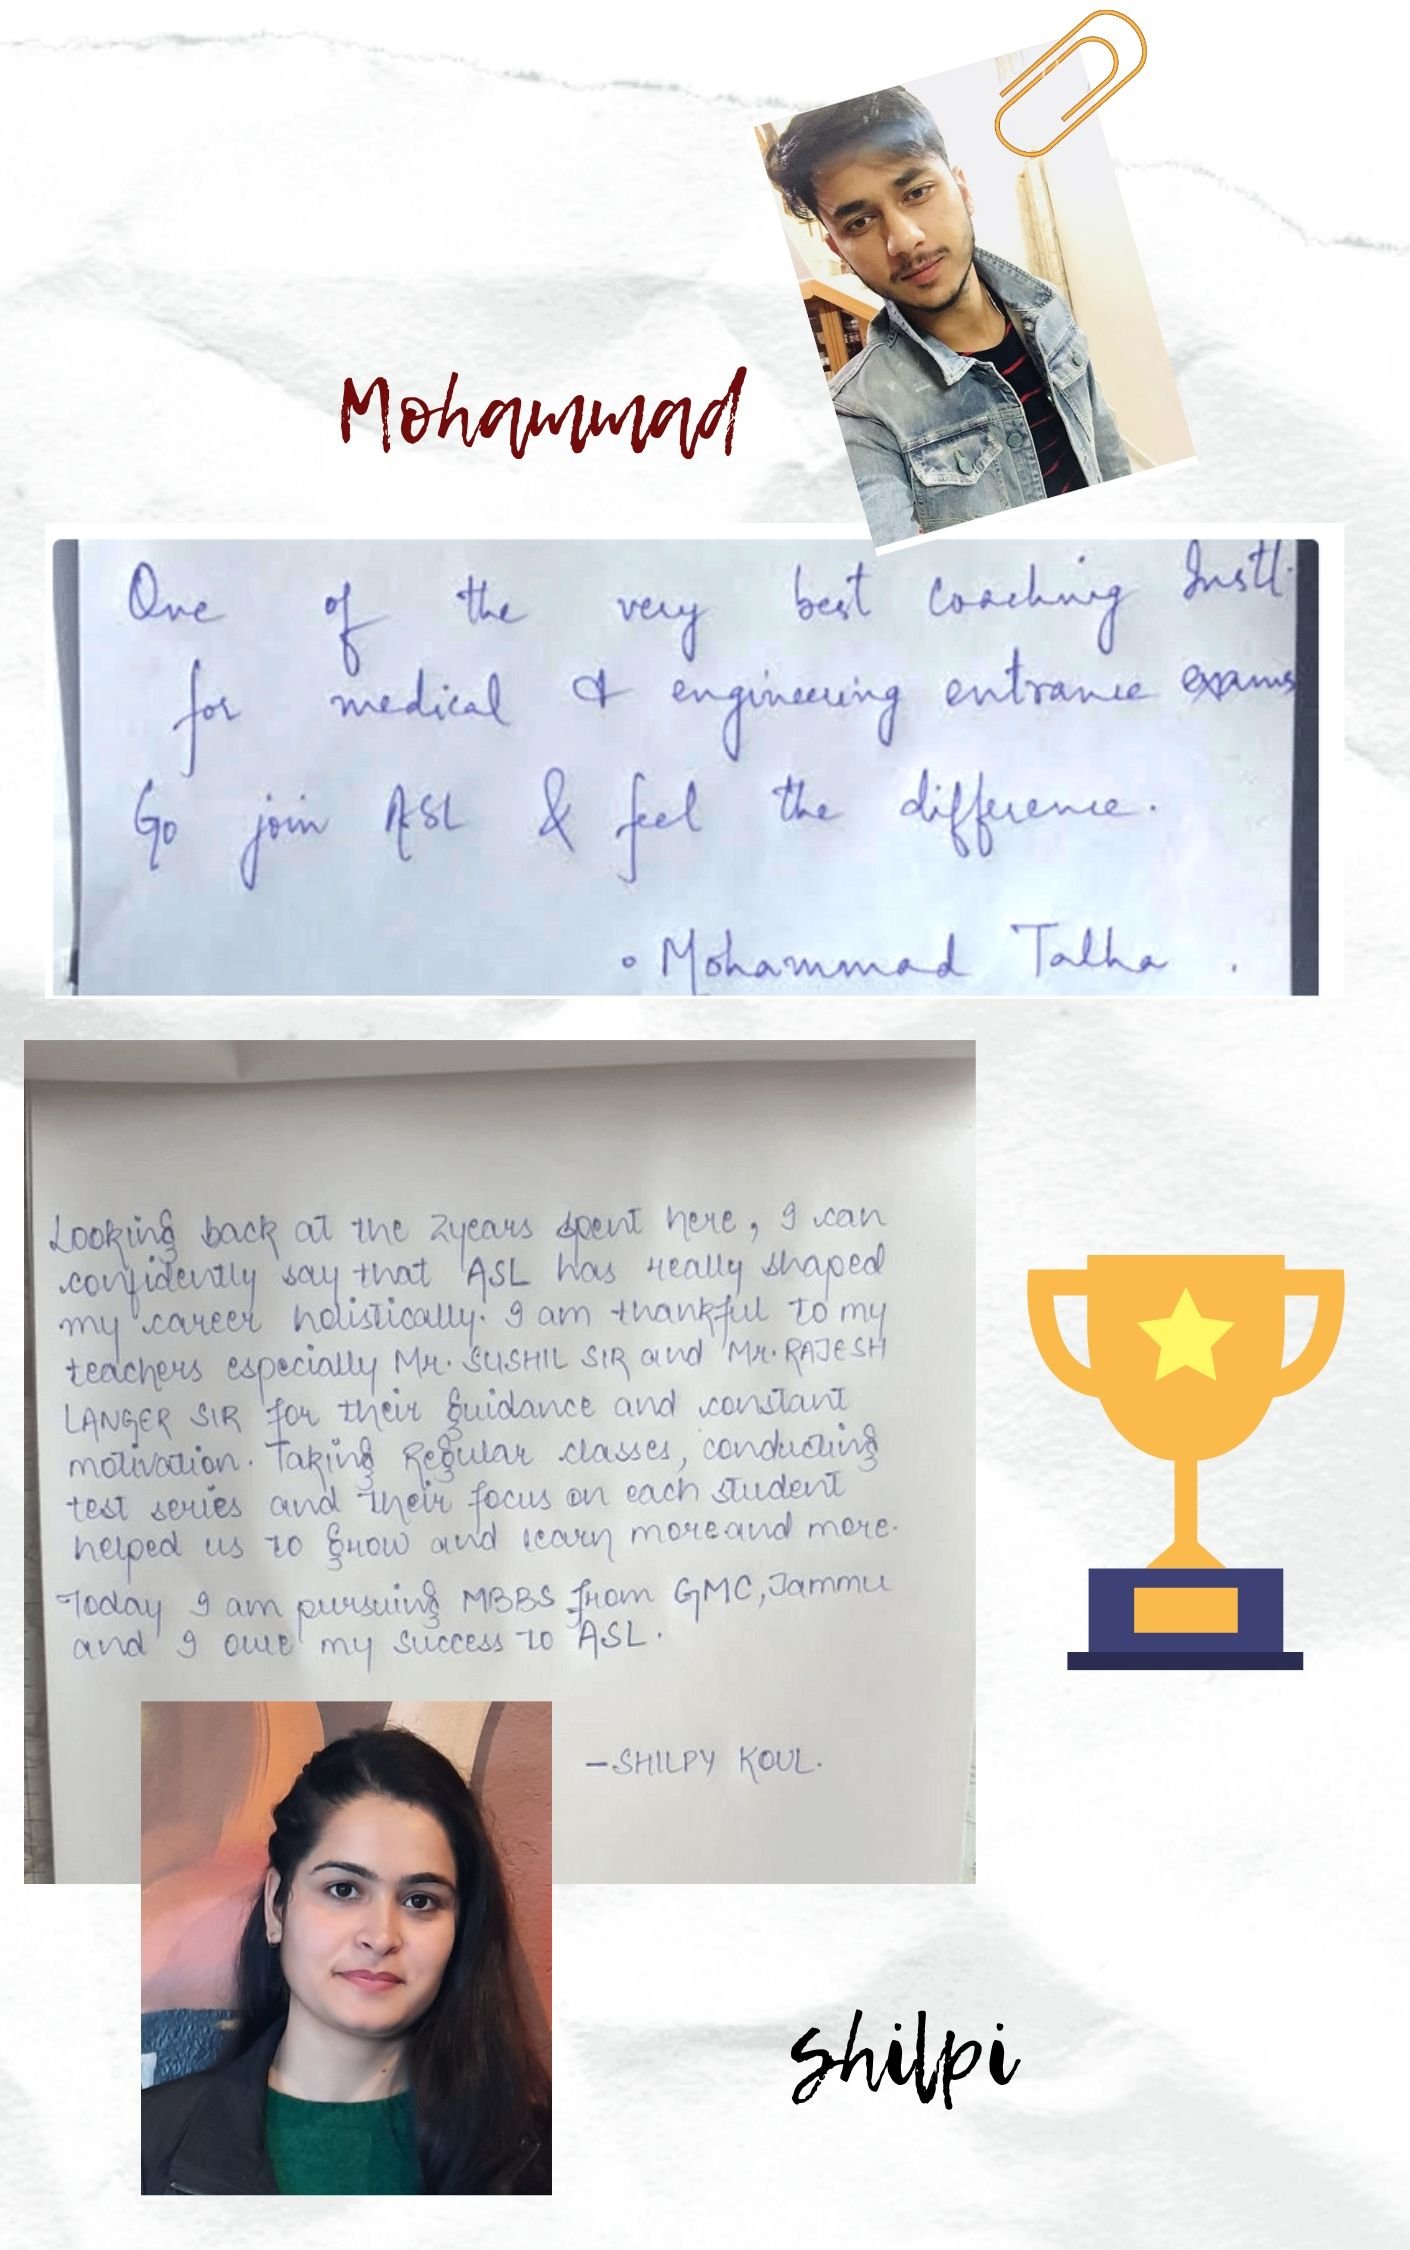 Mohammad
One of the very best coaching Instt.
for medical & engineering entrance exams
Go join ASL & feel the difference.
• Mohammad Talha .
Looking back at the 2years spent here, I can
confidently say that ASL has really shaped
my career holistically. I am thankful to my
teachers especially Mr. SUSHIL SIR and Mr. RAJESH
LANGER SIR for their guidance and constant
motivation. Taking Regular classes, conducting
test series and their focus on each student
helped us to grow and learn more and more.
Today I am pursuing MBBS from GMC, Jammu
and I owe my success to ASL.
– SHILPY KOUL.
Shilpi